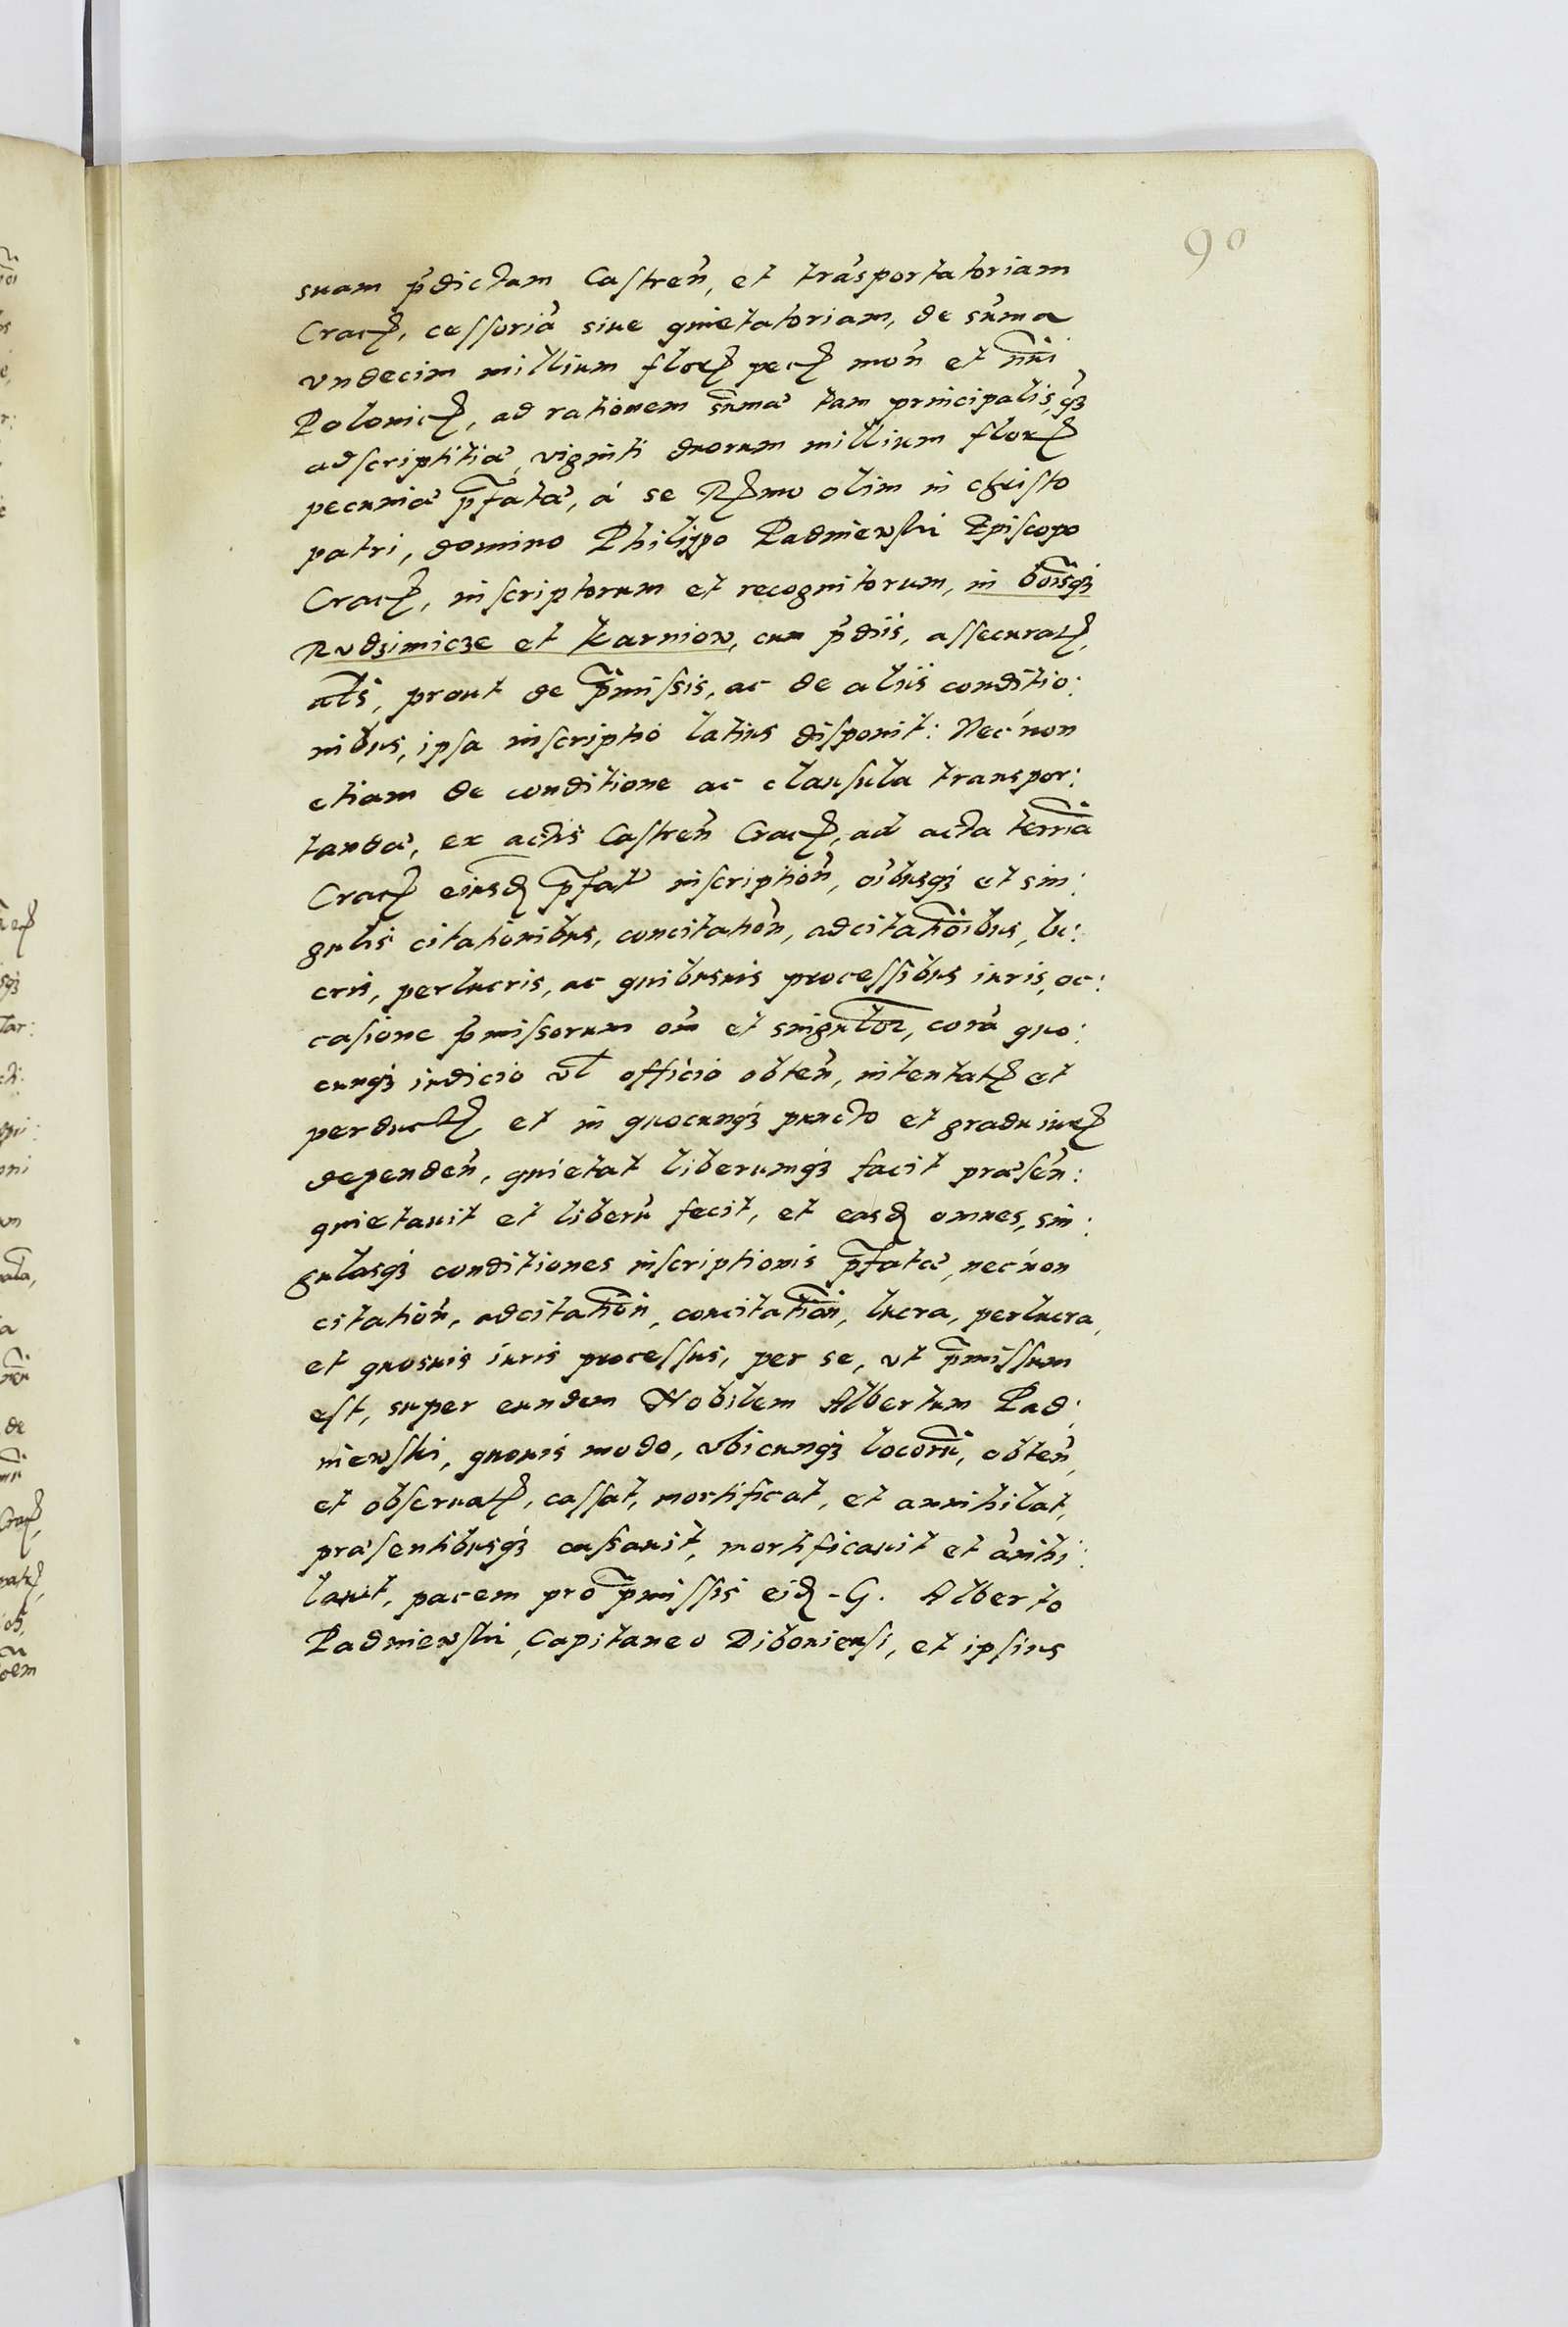 90
suam p̄dictam Castreñ, et trāsportatoriam
Cracꝭ, cessoriā siue quietatoriam, de sūma
vndecim millium florꝭ pecꝭ moñ et nūi
Polonicꝭ, ad rationem sūmæ tam principalis, qꝫ
adscriptitiæ, viginti duorum millium florꝭ
pecuniæ p̄fatæ, á se Rꝭmo olim in christo
patri, domino Philippo Padniewski Episcopo
Cracꝭ, inscriptorum et recognitorum, in boīsqꝫ
Rudzimicze et Karniow, cum p̄diis, assecuratꝭ,
als̄, prout de p̄missis, ac de aliis conditio:
nibus, ipsa inscriptio latius disponit: Nec non
etiam de conditione ac clausula transpor:
tandæ, ex actis Castreñ Cracꝭ, ad acta terriā
Cracꝭ eiusdꝭ p̄fatæ inscriptioñ, oībusqꝫ et sin:
gulis citationibus, concitatioñ, adcitatiōibus, lu:
cris, perlucris, ac quibusuis processibus iuris, oc:
casione p̄missorum om̄ et singulor̄, corā quo:
cunqꝫ iudicio vl̄ officio obteñ, intentatꝭ et
perductꝭ, et in quocunqꝫ puncto et gradu iurꝭ
dependeñ, quietat liberumqꝫ facit præseñ:
quietauit et liberū fecit, et easdꝭ omnes, sin:
gulasqꝫ conditiones inscriptionis p̄fatæ, nec non
citatioñ, adcitatioñ, concitatioñ, lucra, perlucra,
et quosuis iuris processus, per se, vt p̄missum
est, super eundem Nobilem Albertum Pad:
niewski, quouis modo, vbicunqꝫ locorū, obteñ,
et obseruatꝭ, cassat, mortificat, et annihilat,
præsentibusqꝫ cassauit, mortificauit et ānihi:
lauit, pacem pro p̄missis eidꝭ G. Alberto
Padniewski, Capitaneo Diboniensi, et ipsius